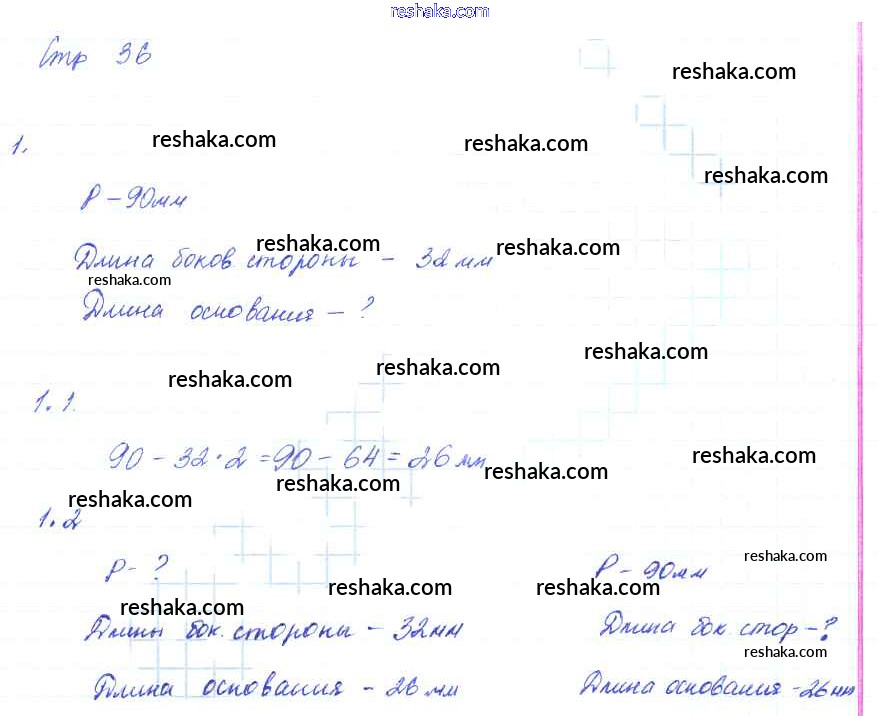 reshaka.com
Стр 36
reshaka.com
1. reshaka.com reshaka.com
reshaka.com
P – 90мм
Длина боков. стороны – 32 мм
reshaka.com reshaka.com
reshaka.com
Длина основания – ?
reshaka.com reshaka.com reshaka.com
1.1.
90 – 32·2 = 90 – 64 = 26 мм
reshaka.com reshaka.com reshaka.com
reshaka.com
1.2
P – ? P – 90мм
reshaka.com
reshaka.com reshaka.com reshaka.com
Длины бок. стороны – 32мм Длина бок. стор – ?
reshaka.com
Длина основания – 26 мм Длина основания – 26 мм